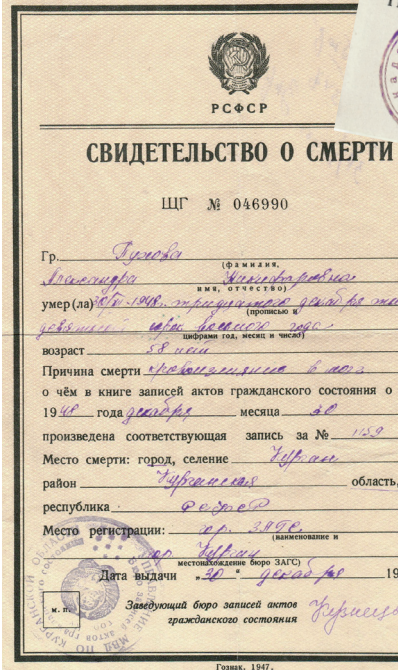 РСФСР
СВИДЕТЕЛЬСТВО О СМЕРТИ
ЩГ № 046990
Гр. Пухова
(фамилия,
Александра
имя, отчество)
умер(ла) 1948 г. тридцатого декабря
(прописью и
сорок восьмого года
цифрами год, месяц и число)
возраст 58 лет
Причина смерти кровоизлияние в мозг
о чём в книге записей актов гражданского состояния о
1948 года декабря месяца 30
произведена соответствующая запись за № 1159
Место смерти: город, селение Курган
район Курганская область,
республика РСФСР
Место регистрации: гор. ЗАГС
(наименование и
гор. Курган
местонахождение бюро ЗАГС)
Дата выдачи „30 “ декабря 19
М. П.
Заведующий бюро записей актов
гражданского состояния
УПРАВЛЕНИЕ МВД ПО КУРГАНСКОЙ ОБЛАСТИ
Гознак. 1947.